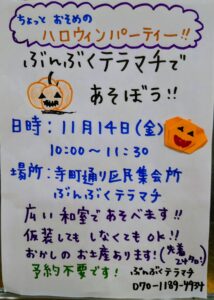 ちょっと おそめの
ハロウィンパーティー!!
ぶんぶくテラマチで
あそぼう!!
日時：11月14日(金)
10:00～11:30
場所：寺町通り区民集会所
ぶんぶくテラマチ
広い和室であそべます!!
仮装しても しなくてもOK!!
おかしの お土産あります!
(先着
予約不要です!
ぶんぶくテラマチ
070-1189-9934